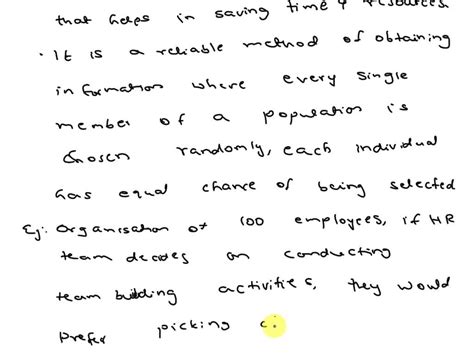 that helps in saving time & resources
· It is a reliable method of obtaining
information where every single
member of a population is
chosen randomly, each individual
has equal chance of being selected
Eg: Organisation of 100 employees, if HR
team decides on conducting
team building activities, they would
prefer picking c